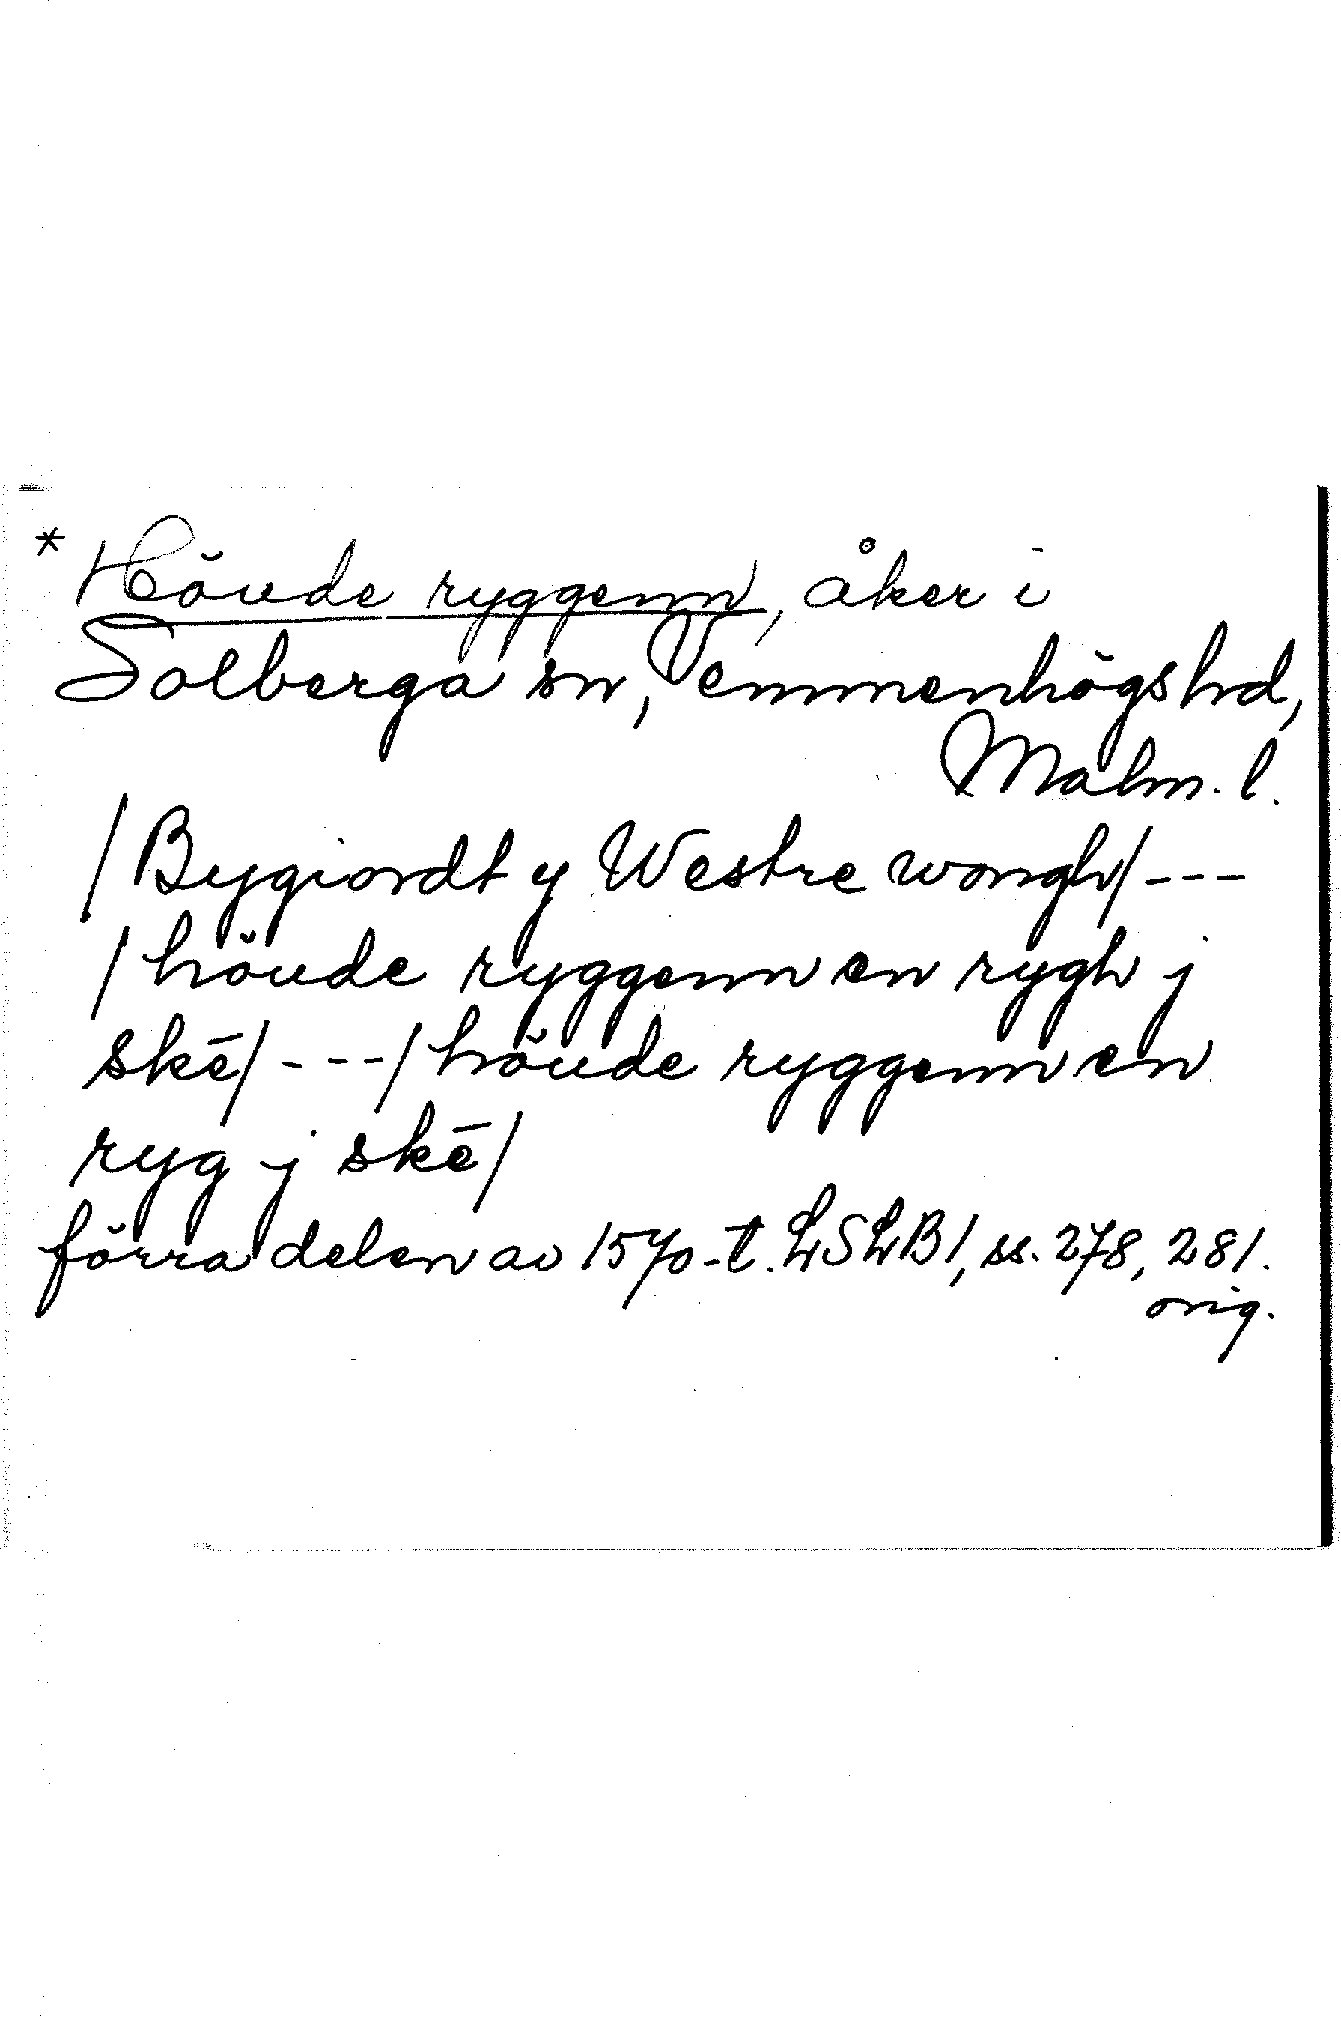 * Höude ryggenn, åker i
Solberga sn, Vemmenhögs hd,
Malm. l.
/Bygiordt y Westre wongh/ ---
/höude ryggenn en rygh j
skē/ --- /höude ryggenn en
ryg j skē/
förra delen av 1570-t. LSLB1, ss. 278, 281.
orig.